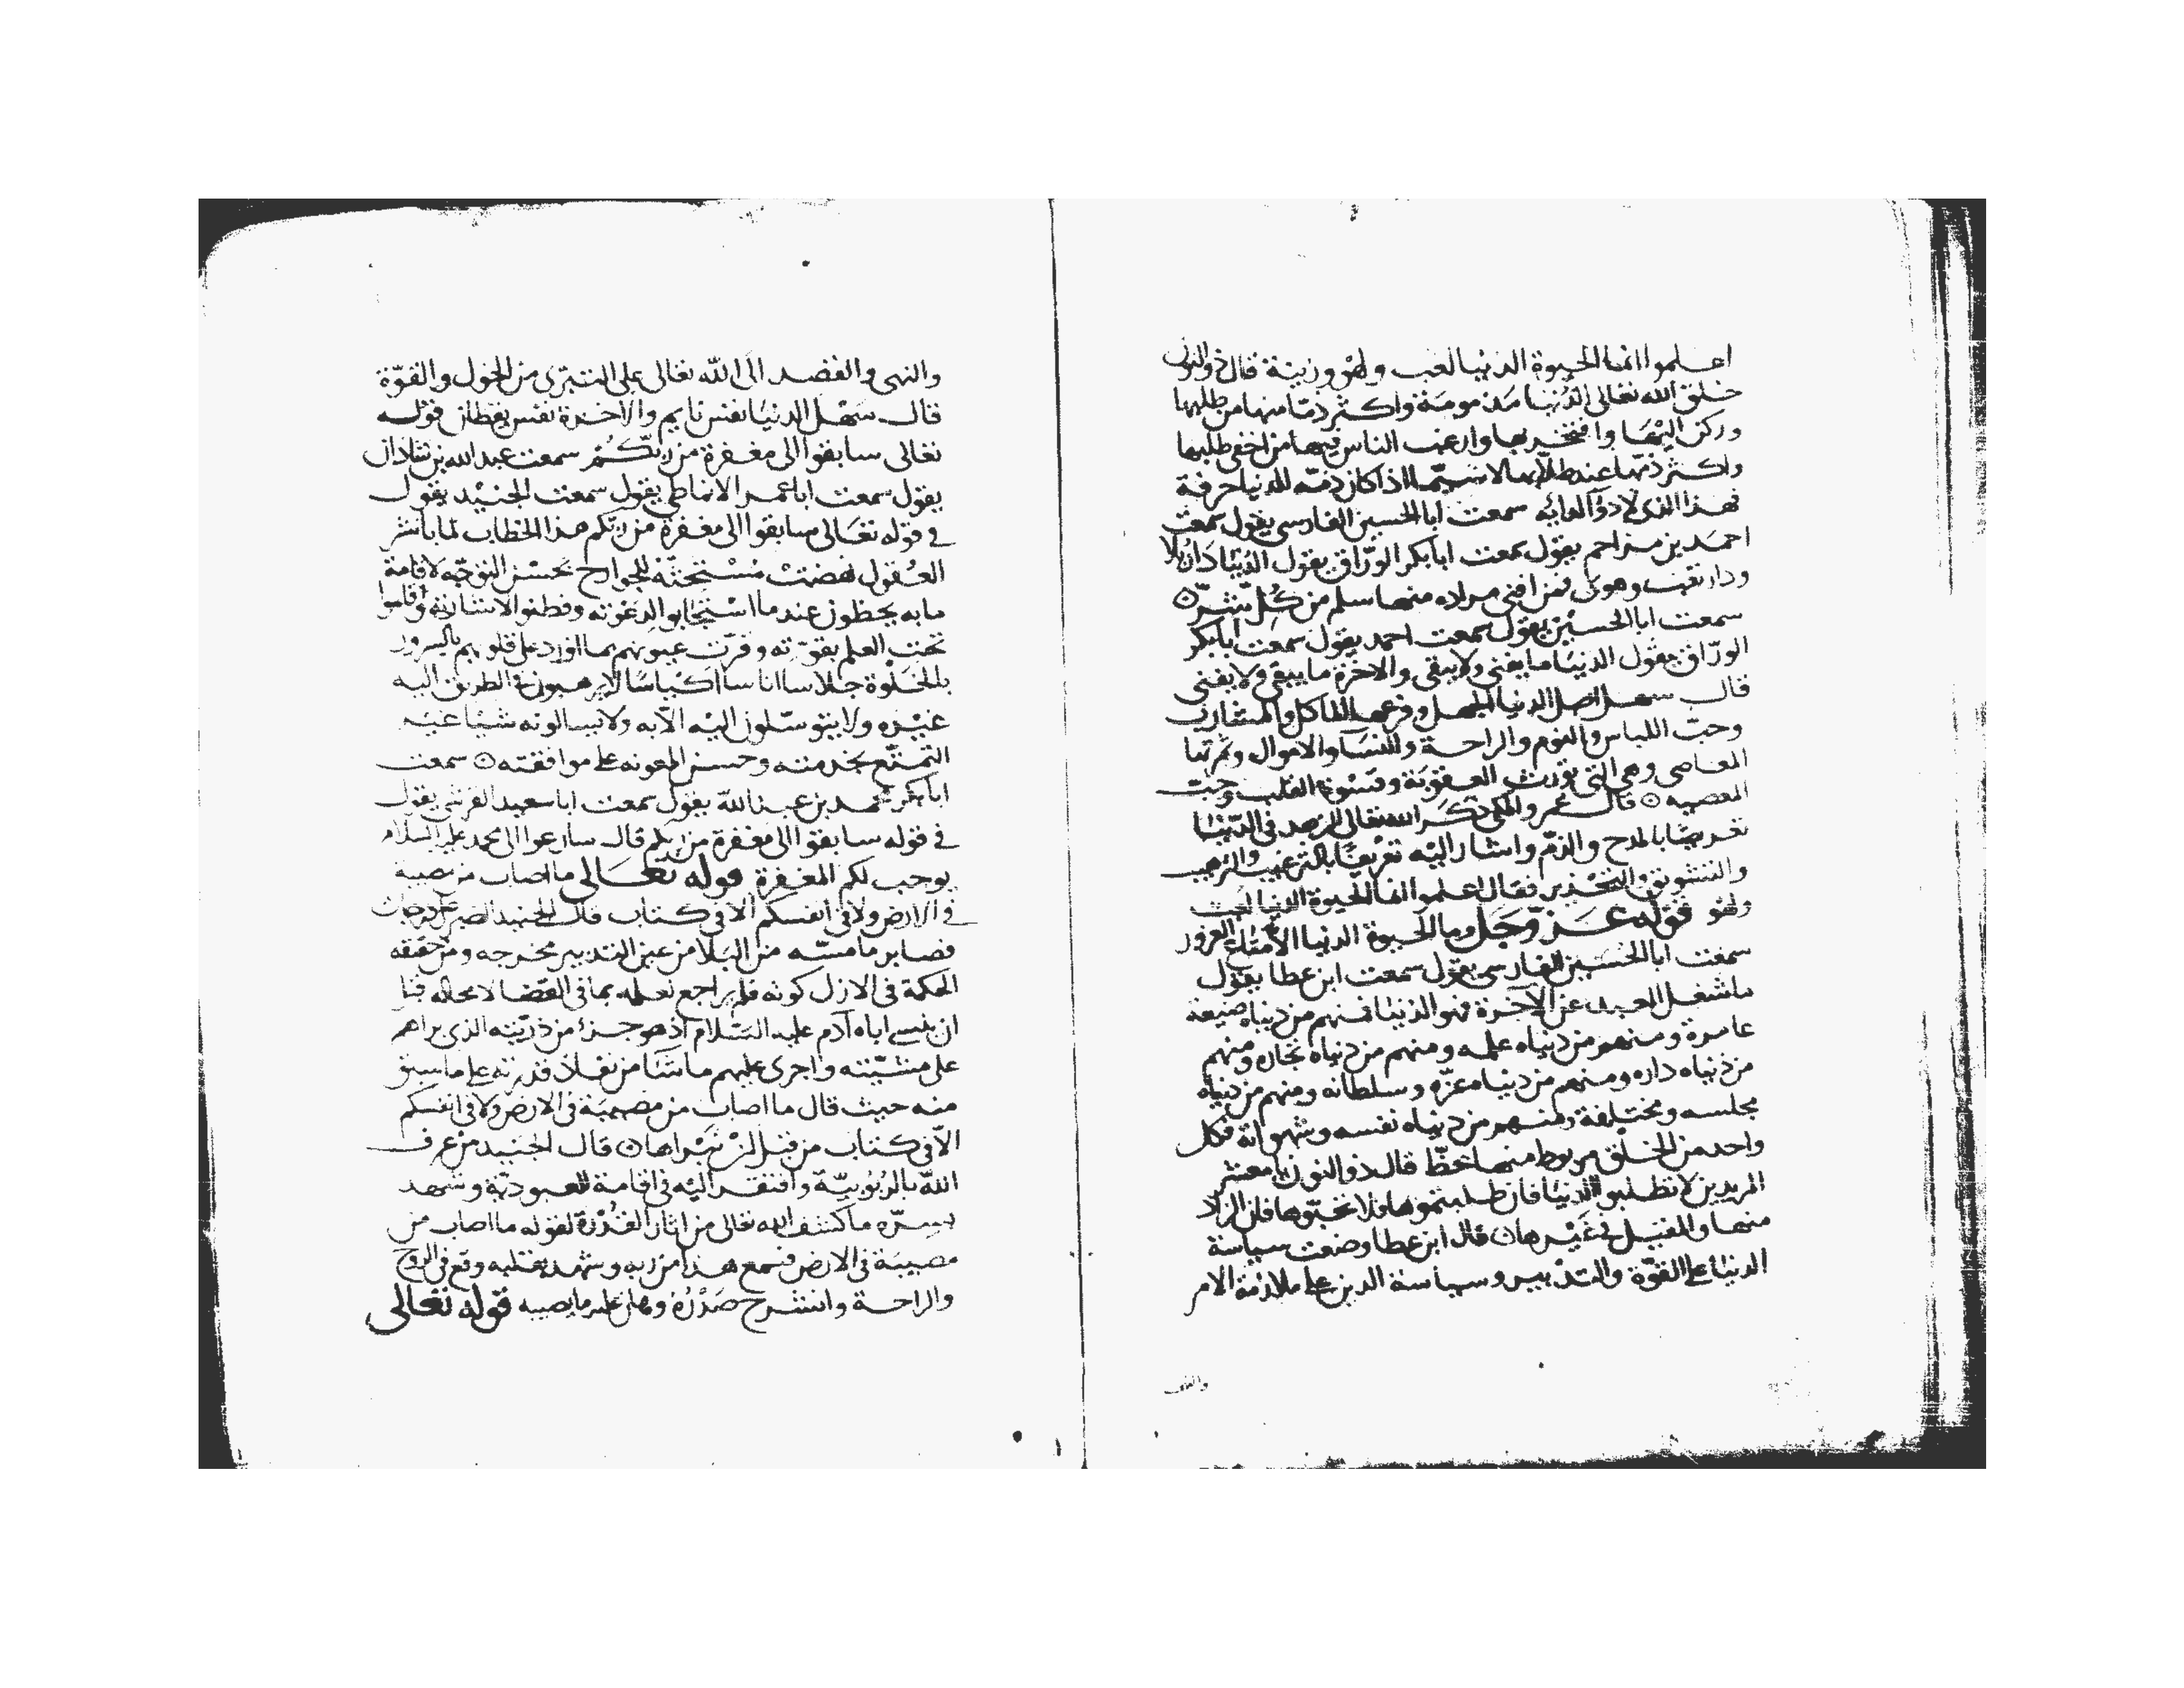 اعلموا انما الحيوة الدنيا لعب ولهو وزينة قال ذوالنون
خلق الله تعالى الدنيا مذمومة واكثر ذما منها من طلبها
وركن اليها وافتخر بها وارغب الناس فيها من اخفى طلبها
واكثر ذمها عند طلابها لا سيما اذا كان ذمه للدنيا حرفة
فهذا الذي لا دوا لدائه سمعت ابا الحسين الفارسي يقول سمعت
احمد بن مزاحم يقول سمعت ابا بكر الوراق يقول الدنيا دار بلا
ودار تعب وهوى فمن افنى مراده منها سلم من كل شر
سمعت ابا الحسين يقول سمعت احمد يقول سمعت ابا بكر
الوراق يقول الدنيا ما يفنى ولا يبقى والاخرة ما يبقى ولا يفنى
قال سهل اصل الدنيا الجهل وفرعها الماكل والمشارب
وحب اللباس والنوم والراحة والنسا والاموال وثمرتها
المعاصي وهي التي تورث العقوبة وقسوة القلب وحب
المعصيه قال عمرو المكي ذكر الله تعالى الزهد في الدنيا
تعريضا بالمدح والذم واشار اليه تعريضا بالترغيب والترهيب
والتشويق والتحذير فقال اعلموا انما الحيوة الدنيا لعب
ولهو قوله عز وجل وما الحيوة الدنيا الا متاع الغرور
سمعت ابا الحسين الفارسي يقول سمعت ابن عطا يقول
ما شغل العبد عن الآخرة فهو الدنيا فمنهم من دنياه ضيعة
عامرة ومنهم من دنياه علمه ومنهم من دنياه تجاره ومنهم
من دنياه داره ومنهم من دنياه عزه وسلطانه ومنهم من دنياه
مجلسه ومختلفة ومنهم من دنياه نفسه وشهواته فكل
واحد من الخلق مربوط منها بحظ قال ذو النون يا معشر
المريدين لا تطلبوا الدنيا فان طلبتموها فلا تحبوها فان الزاد
منها والمقيل في غيرها قال ابن عطا وضعت سياسة
الدنيا على القوة والتدبير وسياسة الدين على ملازمة الامر
والنهي والقصد الى الله تعالى على التبري من الحول والقوة
قال سهل الدنيا نفس نايم والاخرة نفس يقظان قوله
تعالى سابقوا الى مغفرة من ربكم سمعت عبد الله بن شاذان
يقول سمعت ابا عمر الانماطي يقول سمعت الجنيد يقول
في قوله تعالى سابقوا الى مغفرة من ربكم هذا الخطاب لما باشر
العقول نهضت مستحثة للجوارح بحسن التوجه لاقامة
ما به يحظون عند ما استجابوا لدعوته وفطنوا لاشارته واقاموا
تحت العلم بقوته وقرت عيونهم بما اورد على قلوبهم بالسرور
بالخلوة جلاسا اناسا اكياسا لا يرهبون في الطريق اليه
غيره ولا يتوسلون اليه الا به ولا يسالونه شيا غير
التمتع بخدمته وحسن المعونه على موافقته سمعت
ابا بكر محمد بن عبد الله يقول سمعت ابا سعيد القرشي يقول
في قوله سابقوا الى مغفرة من ربكم قال سارعوا الى محمد عليه السلام
يوجب لكم المغفرة قوله تعالى ما اصاب من مصيبة
في الارض ولا في انفسكم الا في كتاب قال الجنيد الصبر على درجات
فصابر ما مسه من البلا من عين التدبير مخرجه ومن حقيقه
الحكمة في الازل كونه فلم يراجع لعلمه بما في القضا لا محاله فيا
ان ينسى اباه آدم عليه السلام اذ هو جزء من ذريته الذي براهم
على مشيته واجرى عليهم ما شا من نفاذ قدرته على ما سبق
منه حيث قال ما اصاب من مصيبة في الارض ولا في انفسكم
الا في كتاب من قبل ان نبراها قال الجنيد من عرف
الله بالربوبية وافتقر اليه في اقامة العبودية وشهد
بسره ما كشف الله تعالى من اثار القدرة لقوله ما اصاب من
مصيبة في الارض فسمع هذا من ربه وشهد بقلبه وقع في الروح
والراحة وانشرح صدره وهان عليه ما يصيبه قوله تعالى